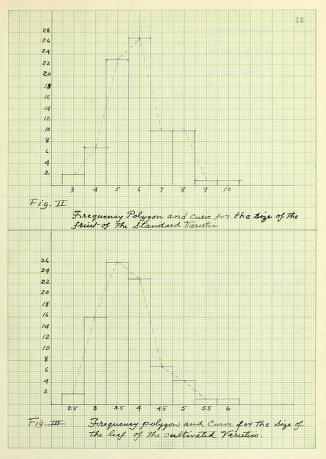 28
26
24
22
20
18
16
14
12
10
8
6
4
2
3 4 5 6 7 8 9 10
Fig. II
Frequency Polygon and Curve for the size of the
fruit of the Standard Varieties
26
24
22
20
18
16
14
12
10
8
6
4
2
2.5 3 3.5 4 4.5 5 5.5 6
Fig. III Frequency polygon and Curve for the Size of
the leaf of the cultivated Varieties.